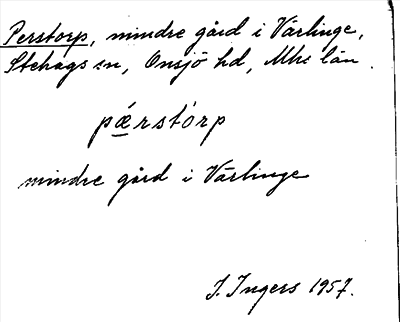 Perstorp, mindre gård i Värlinge,
Stehags sn, Onsjö hd, Mhs län.
pǽrstórp
mindre gård i Värlinge
I. Ingers 1957.